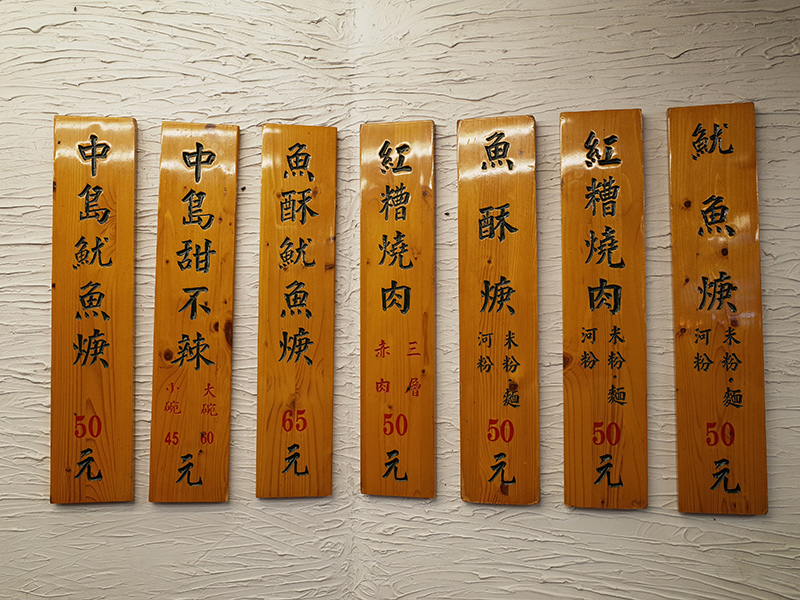 魷魚焿
米粉.麵
河粉
50
元
紅糟燒肉
米粉.麵
河粉
50
元
魚酥焿
米粉.麵
河粉
50
元
紅糟燒肉
三層
赤肉
50
元
魚酥魷魚焿
65
元
中島甜不辣
大碗 60
小碗 45
元
中島魷魚焿
50
元